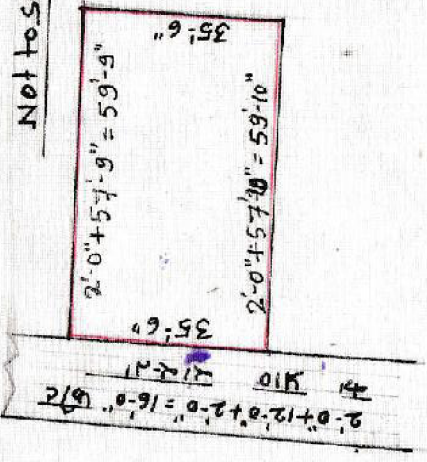 Not to s
35'-6"
2'-0"+57'-9" = 59'-9"
2'-0"+57'-10" = 59'-10"
35'-6"
2'-0"+12'-0"+2'-0" = 16'-0"